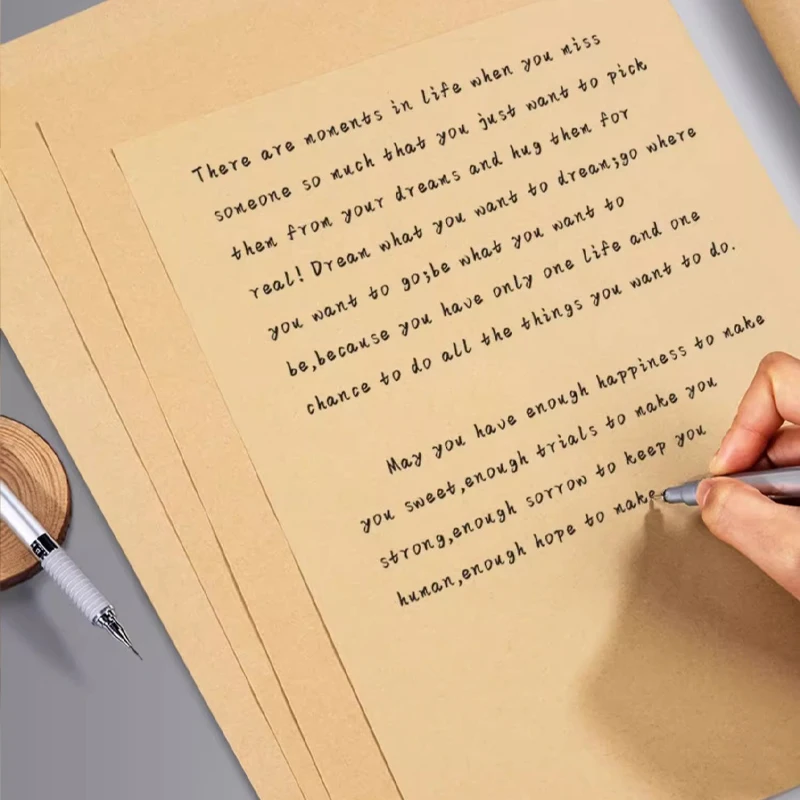 There are moments in life when you miss
someone so much that you just want to pick
them from your dreams and hug them for
real! Dream what you want to dream;go where
you want to go;be what you want to
be,because you have only one life and one
chance to do all the things you want to do.
May you have enough happiness to make
you sweet,enough trials to make you
strong,enough sorrow to keep you
human,enough hope to make